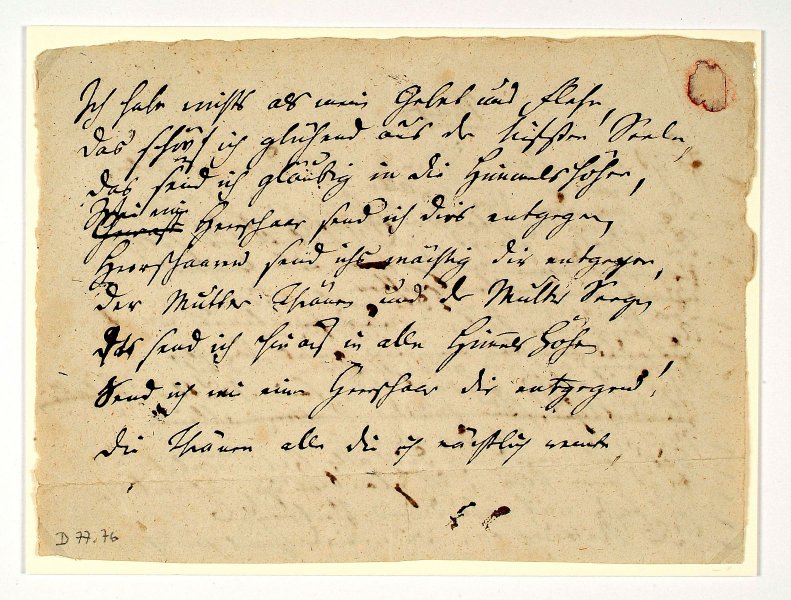 Ich habe nichts als mein Gebet und Flehn,
das schöpf ich glühend aus der tiefsten Seele,
das send ich gläubig in die Himmelshöhen,
Wie ein Heerschaar send ich dirs entgegen
Heerschaaren send ichs mächtig dir entgegen,
der Mutter Thränen und der Mutter Segen
das send ich hinauf in alle Himmels Höhn
Send ich wie eine Heerschaar dir entgegen!
die Thränen alle die ich nächtlich weinte,
D 77.76